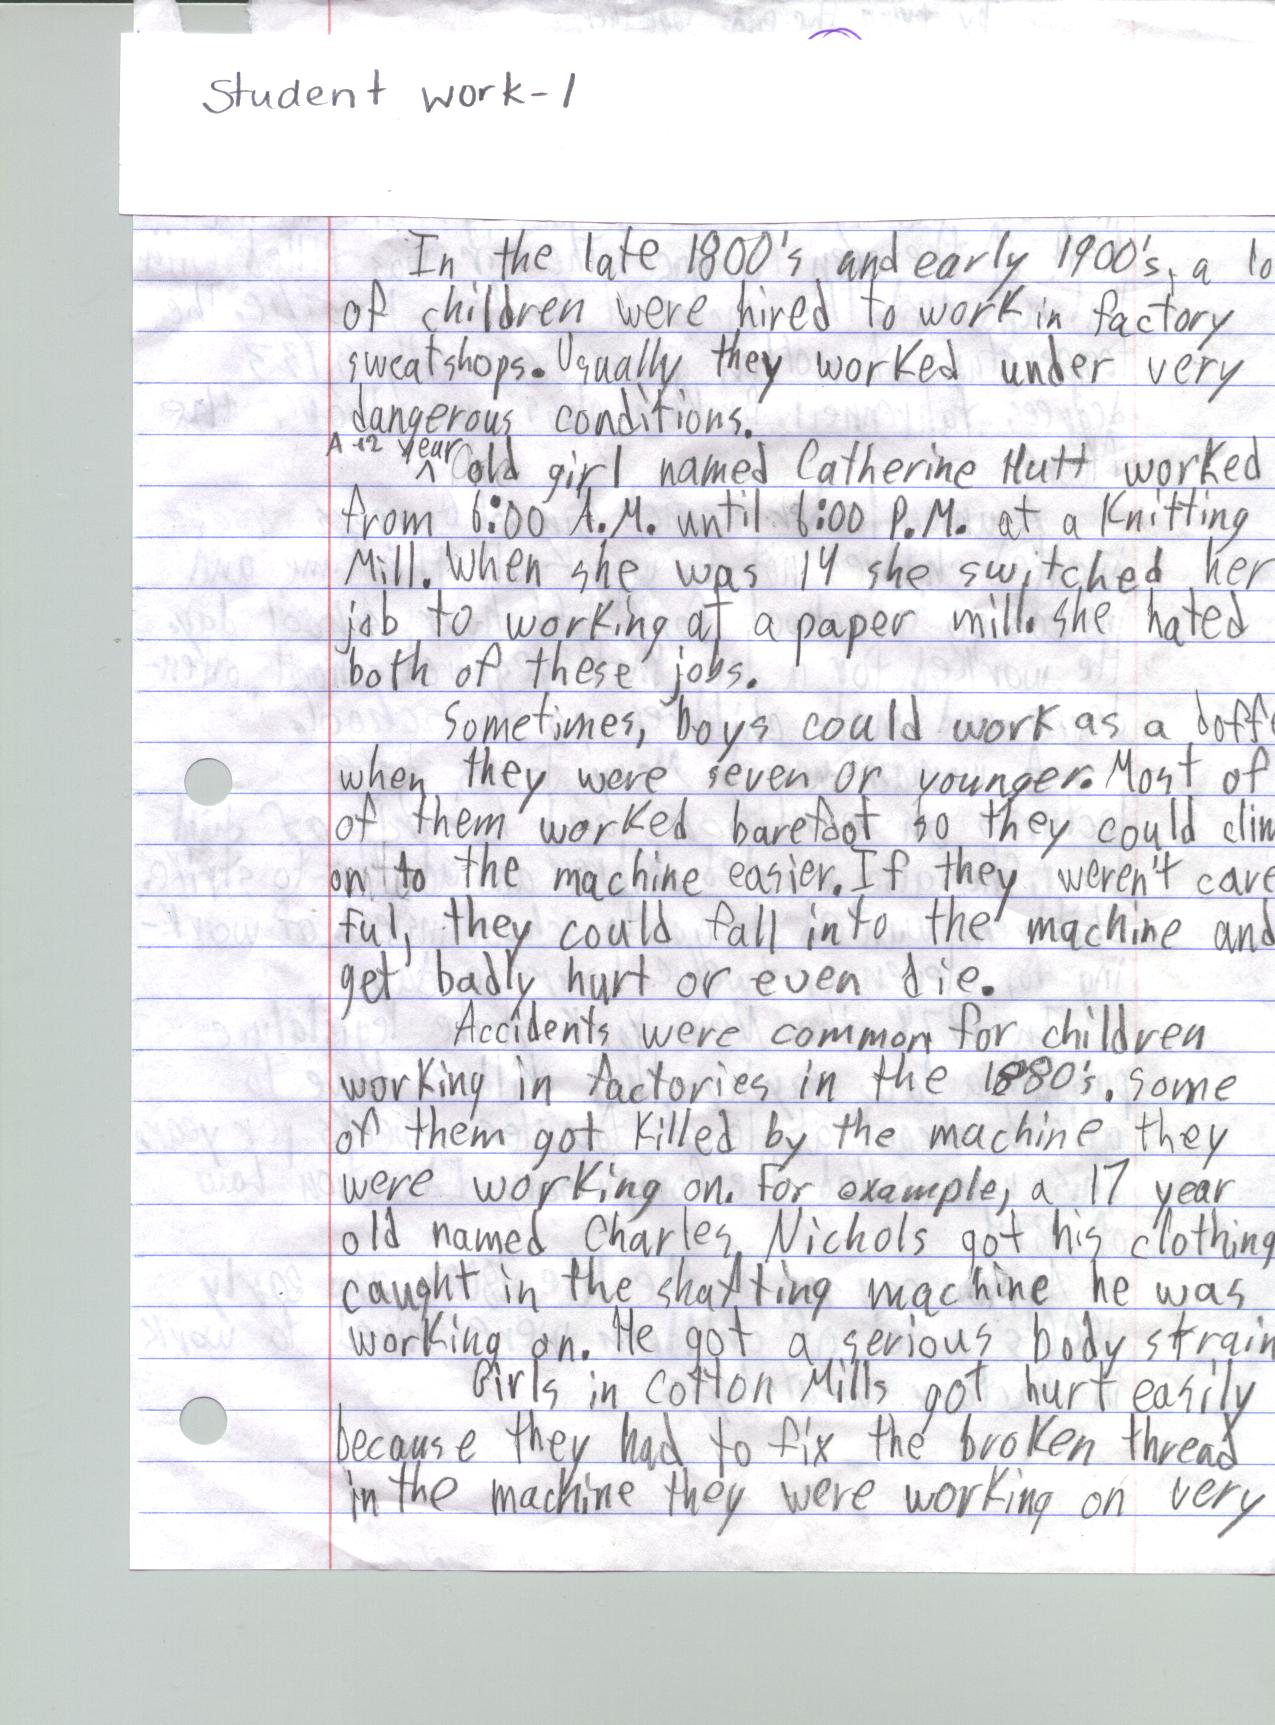 Student work-1
In the late 1800's and early 1900's, a lo
of children were hired to work in factory
sweatshops. Usually they worked under very
dangerous conditions.
A 12 year old girl named Catherine Hutt worked
from 6:00 A.M. until 6:00 P.M. at a Knitting
Mill. When she was 14 she switched her
job to working at a paper mill. she hated
both of these jobs.
Sometimes, boys could work as a doff
when they were seven or younger. Most of
of them worked barefoot so they could clim
on to the machine easier. If they weren't care
ful, they could fall into the machine and
get badly hurt or even die.
Accidents were common for children
working in factories in the 1880's. some
of them got killed by the machine they
were working on. For example, a 17 year
old named Charles Nichols got his clothing
caught in the shafting machine he was
working on. He got a serious body strain
Girls in Cotton Mills got hurt easily
because they had to fix the broken thread
in the machine they were working on very